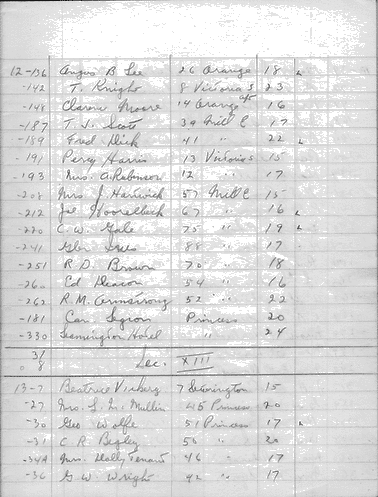 12-136 Angus B Lee 26 Orange 18 L
-142 T. Knight 8 Victoria S 23
-148 Clarence Moore 14 Orange 16
-187 T. J. Scott 39 Mill C 17
-189 Fred Dick 41 " 22 L
-191 Percy Harris 13 Victoria S 15
-193 Mrs. A. Robinson 12 " 17
-208 Mrs. J. Hartwick 57 Mill C 15
-212 Joe 67 " 16 L
-220 C. W. Gale 75 " 19 L
-241 88 " 17
-251 R. D. Brown 70 " 18
-260 Ed Deacon 54 " 16
-262 R. M. Armstrong 52 " 22
-181 Princess 20
-330 Leamington Hotel " 24
31
8 Sec. XIII
13-7 Beatrice 7 15
-27 Mrs. S. Mc Mullin 45 Princess 20
-30 Geo Wolfe 51 Princess 17 L
-31 C. R. Begley 50 " 20
-34A Mrs. Holly Tenant 46 " 17
-36 G. W. Wright 42 " 17